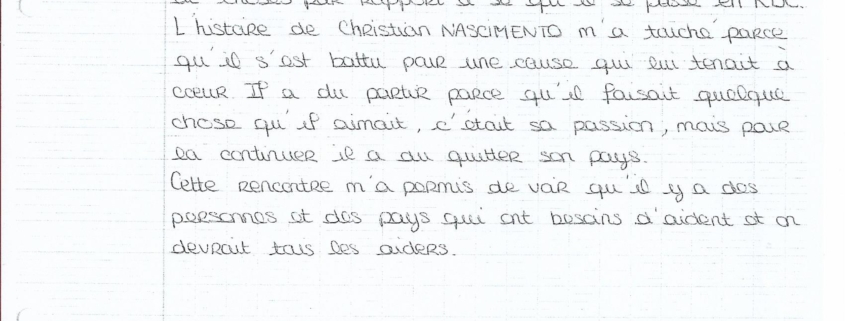 de choses par rapport à se qu'il se passe en RDC.
L'histoire de Christian NASCIMENTO m'a touché parce
qu'il s'est battu pour une cause qui lui tenait à
cœur. Il a du partir parce qu'il faisait quelque
chose qu'il aimait, c'était sa passion, mais pour
la continuer il a du quitter son pays.
Cette rencontre m'a permis de voir qu'il y a des
personnes et des pays qui ont besoins d'aident et on
devrait tous les aiders.